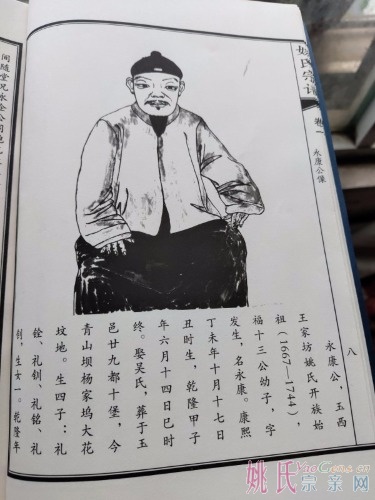 姚氏宗谱
卷一
永康公像
八
永康公，玉西
王家坊姚氏开族始
祖(1667—1744)，
福十三公幼子，字
发生，名永康。康熙
丁未年十月十七日
丑时生，乾隆甲子
年六月十四日巳时
终。娶吴氏，葬于玉
邑廿九都十堡，今
青山坝杨家坞大花
坟地。生四子：礼
铨、礼钏、礼铭、礼
钊，生女一。乾隆年
间随堂兄永全公
姚氏宗亲网
YaoGens.cn